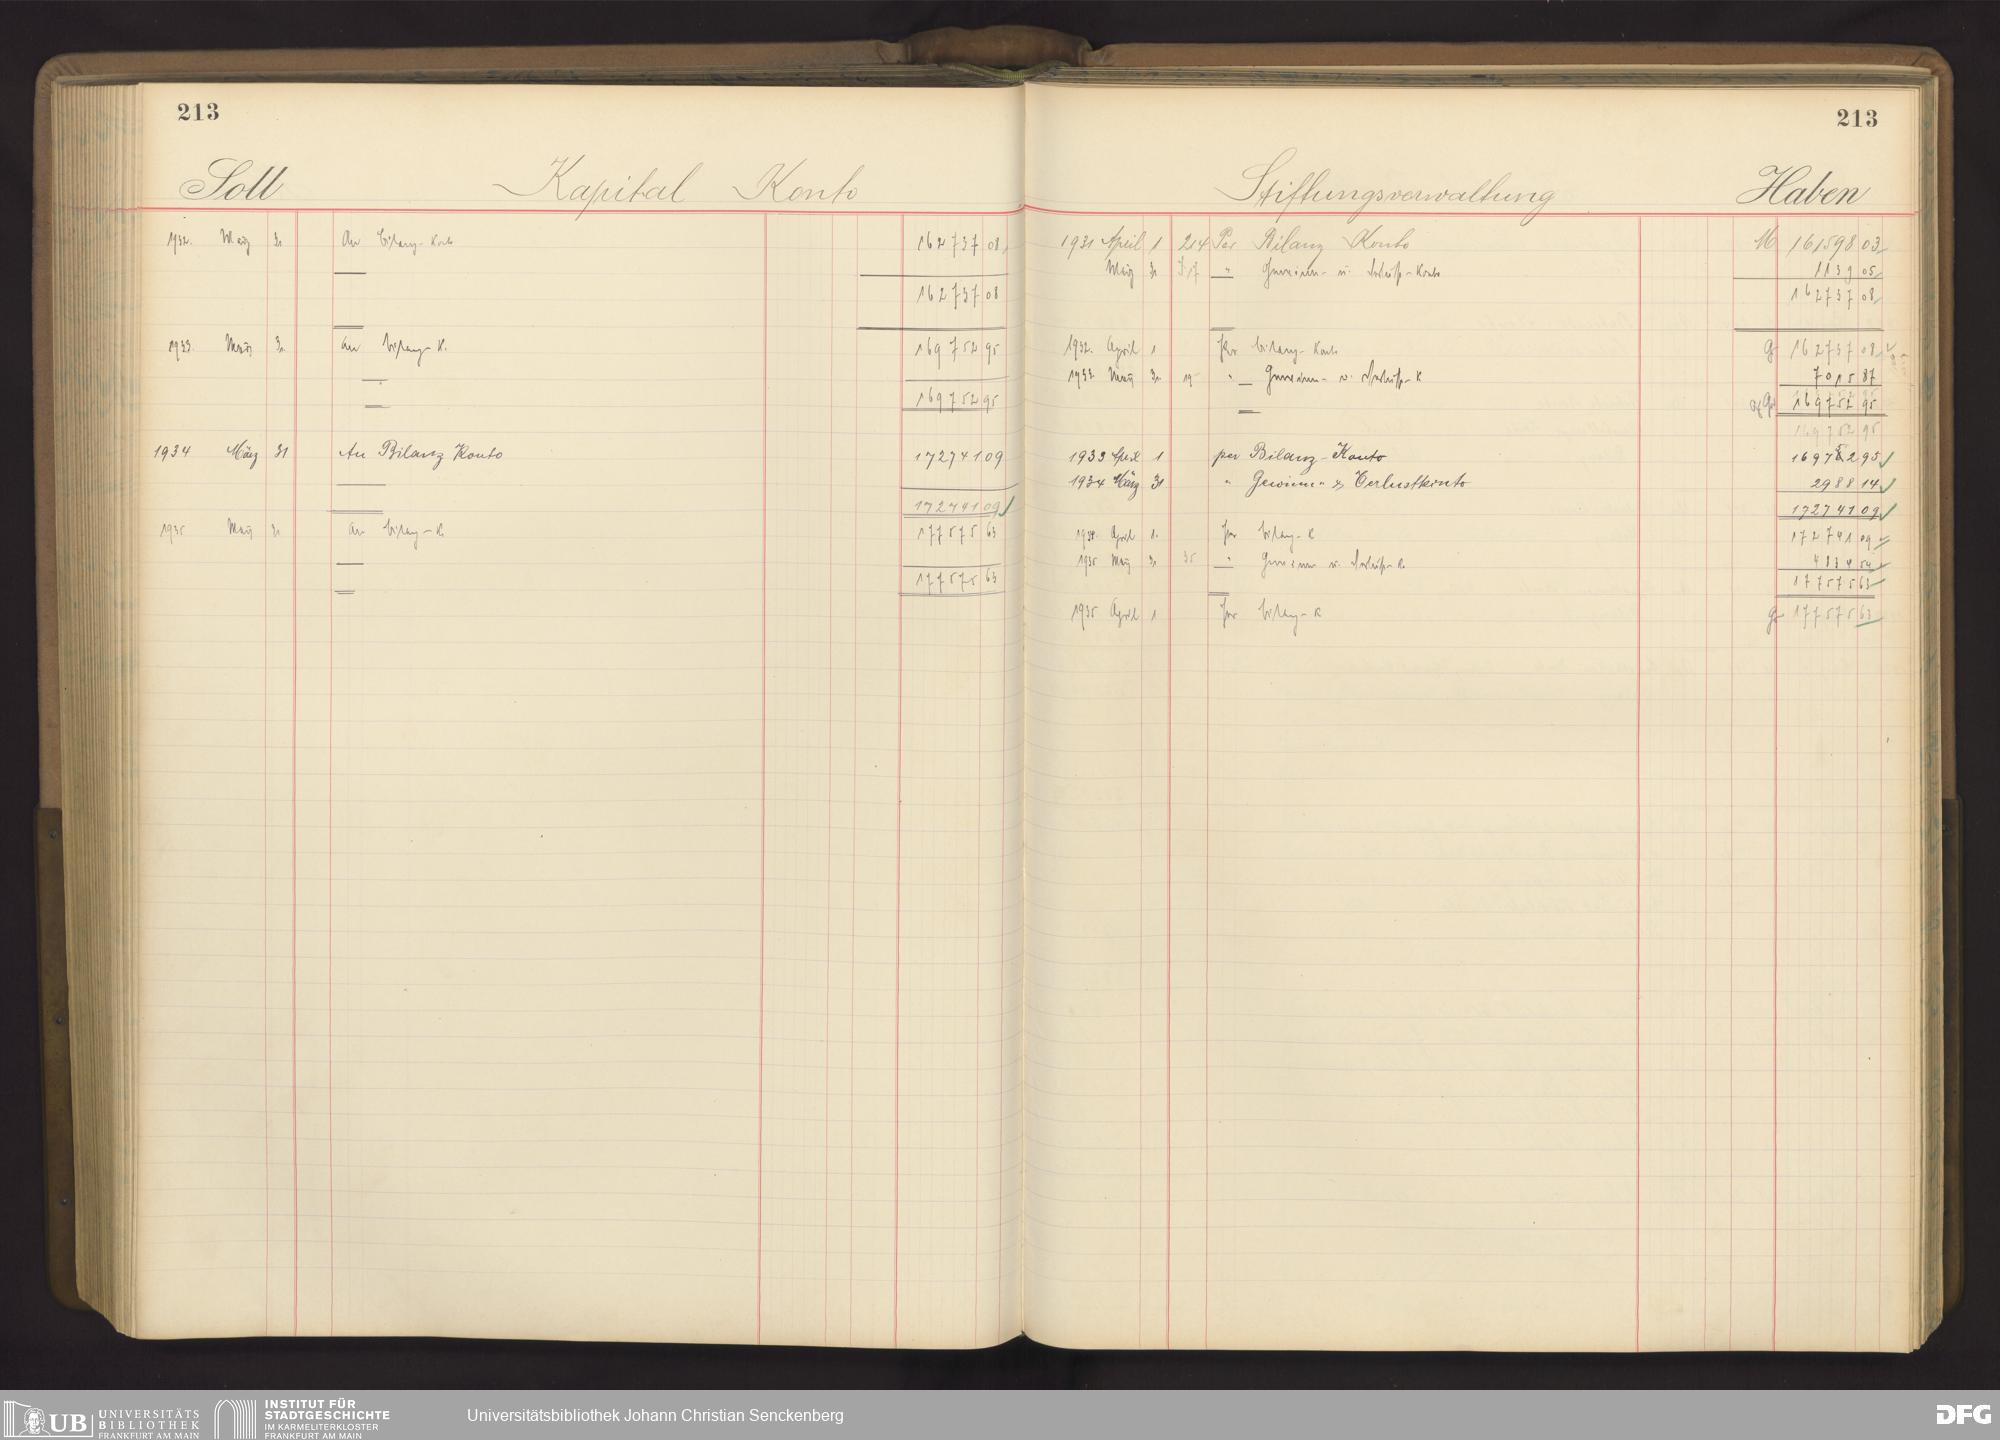 213
Soll Kapital Konto
1932. März 31 An Bilanz-Konto 162737 08
162737 08
1933. März 31. An Bilanz-K. 169752 95
169752 95
1934 März 31 An Bilanz Konto 172741 09
172741 09
1935 März 31 An Bilanz-K. 177575 63
177575 63
213
Stiftungsverwaltung Haben
1931 April 1 214 Per Bilanz Konto M 161598 03
März 31 " Gewinn- u. Verlust-Konto 1139 05
162737 08
1932. April 1 Per Bilanz-Konto 162737 08
1933 März 31. 19 " Gewinn- u. Verlust-K 7015 87
169752 95
169752 95
1933 April 1 per Bilanz-Konto 169752 95
1934 März 31 " Gewinn- & Verlustkonto 2988 14
172741 09
1934. April 1. Per Bilanz-K 172741 09
1935 März 31 35 " Gewinn u. Verlust-K. 4834 54
177575 63
1935 April 1 Per Bilanz-K 177575 63
UB UNIVERSITÄTS
BIBLIOTHEK
FRANKFURT AM MAIN
INSTITUT FÜR
STADTGESCHICHTE
IM KARMELITERKLOSTER
FRANKFURT AM MAIN
Universitätsbibliothek Johann Christian Senckenberg
DFG